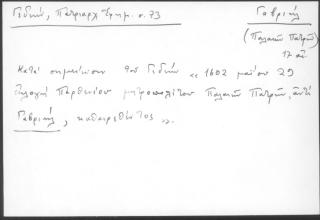 Γεδεών, Πατριαρχ. Ἐφημ. σ. 73
Γαβριήλ
(Παλαιῶν Πατρῶν)
17 αἰ.
Κατὰ σημείωσιν τοῦ Γεδεών « 1602 μαΐου 29
ἐκλογὴ Παρθενίου μητροπολίτου Παλαιῶν Πατρῶν, ἀντὶ
Γαβριήλ, καθαιρεθέντος ».